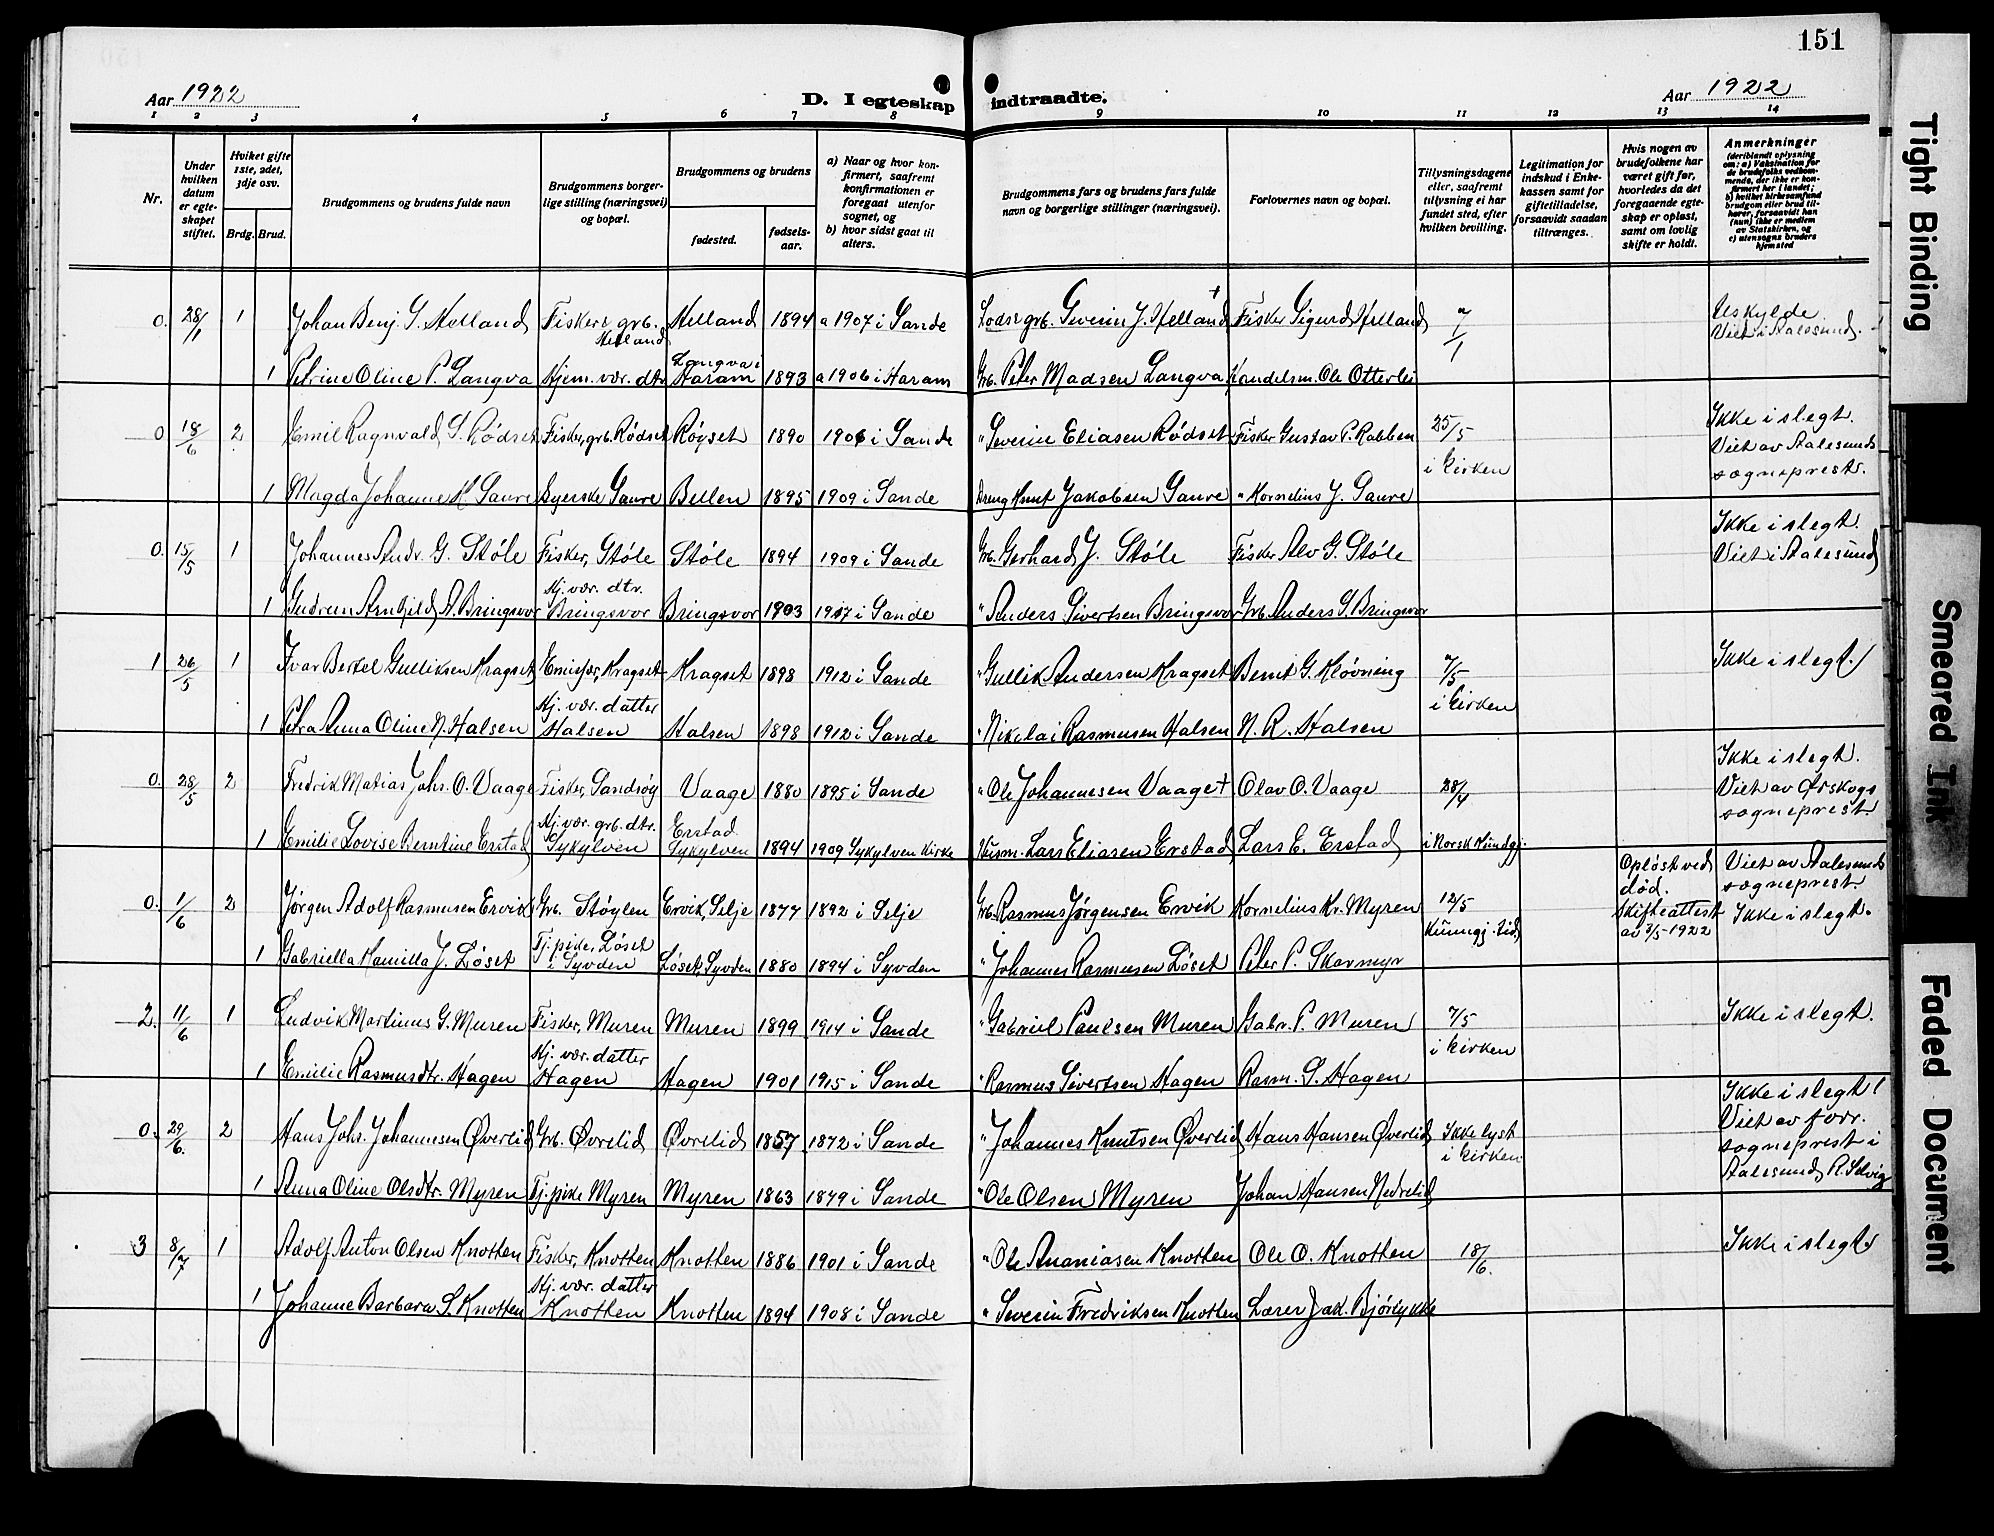 151
Aar 1922
D. I egteskap indtraadte.
Aar 1922
1 2 3 4 5 6 7 8 9 10 11 12 13 14
Nr.
Under hvilken datum er egteskapet stiftet.
Hviket gifte 1ste, 2det, 3dje osv.
Brdg. Brud.
Brudgommens og brudens fulde navn
Brudgommens borgerlige stilling (næringsvei) og bopæl.
Brudgommens og brudens
fødested.
fødselsaar.
a) Naar og hvor konfirmert, saafremt konfirmationen er foregaat utenfor sognet, og
b) hvor sidst gaat til alters.
Brudgommens fars og brudens fars fulde navn og borgerlige stillinger (næringsvei).
Forlovernes navn og bopæl.
Tillysningsdagene eller, saafremt tillysning ei har fundet sted, efter hvilken bevilling.
Legitimation for indskud i Enkekassen samt for giftetilladelse, forsaavidt saadan tiltrænges.
Hvis nogen av brudefolkene har været gift før, hvorledes da det foregaaende egteskap er opløst, samt om lovlig skifte er holdt.
Anmerkninger
(deriblandt oplysning om: a) Vaksination for de brudefolks vedkommende, der ikke er konfirmert her i landet; b) hvilket kirkesamfund brudgom eller brud tilhører, forsaavidt han (hun) ikke er medlem av Statskirken, og c) utensogns bruders hjemsted
0. 28/1 1 Johan Benj. S. Helland Fisker, grb. Helland Helland 1894 a 1907 i Sande Lods, grb. Severin J. Helland + Fisker Sigurd Helland 7/1 Uskylde. Viet i Aalesund.
1 Petrine Oline P. Langva Hjem. vær. dtr Langva i Haram 1893 a 1906 i Haram Grb. Peter Madsen Langva Handelsm. Ole Otterlei
0 18/6 2 Emil Ragnvald S. Rödset Fisker, grb. Rödset Röyset 1890 1906 i Sande " Severin Eliasen Rödset Fisker Gustav P. Rabben 25/5 i kirken Ikke i slegt. Viet av Aalesunds sogneprest.
1 Magda Johanne K. Saure Syerske Saure Bellen 1895 1909 i Sande Dreng Knut Jakobsen Saure " Kornelius J. Saure
0. 15/5 1 Johannes Andr. G. Støle Fisker, Støle Støle 1894 1909 i Sande Grb. Gerhard J. Støle Fisker Alv G. Støle Ikke i slegt. Viet i Aalesund
1 Gudrun Arnhild A. Bringsvor Hj. vær. dtr. Bringsvor Bringsvor 1903 1917 i Sande " Anders Sivertsen Bringsvor Grb. Anders S. Bringsvor
1 26/5 1 Ivar Bertel Gulliksen Kragset Emisær, Kragset Kragset 1898 1912 i Sande " Gullik Andersen Kragset Bernt G. Kløvning 7/5 i kirken Ikke i slegt.
1 Petra Anna Oline N. Halsen Hj. vær. datter Halsen Halsen 1898 1912 i Sande " Nikolai Rasmusen Halsen N. R. Halsen
0. 28/5 2 Fredrik Matias Johs. O. Vaage Fisker, Sandsøy Vaage 1880 1895 i Sande " Ole Johannesen Vaage + Olav O. Vaage 28/4 i Norsk Kundgj. Ikke i slegt. Viet av Ørskogs sogneprest.
1 Emilie Lovise Berntine Erstad Hj. vær. grb. dtr. Sykylven Erstad Sykylven 1894 1909 Sykylven kirke Husm. Lars Eliasen Erstad Lars E. Erstad
0. 1/6 2 Jørgen Adolf Rasmusen Ervik Grb. Støylen Ervik Selje 1877 1892 i Selje Grb. Rasmus Jørgensen Ervik Kornelius Kr. Myren 12/5 Kunngj. tid. Opløst ved død. Skifteattest av 3/5-1922 Viet av Aalesunds sogneprest. Ikke i slegt.
1 Gabriella Kamilla J. Løset Tj. pike, Løset i Syvden Løset, Syvden 1880 1894 i Syvden " Johannes Rasmusen Løset Peter P. Skarmyr
2. 11/6 1 Ludvik Martinus G. Muren Fisker, Muren Muren 1899 1914 i Sande " Gabriel Paulsen Muren Gabr. P. Muren 7/5 i kirken Ikke i slegt.
1 Emilie Rasmusdtr. Hagen Hj. vær. datter Hagen Hagen 1901 1915 i Sande " Rasmus Sivertsen Hagen Rasm. S. Hagen
0. 29/6. 2 Hans Johs. Johannesen Øvrelid Grb. Øvrelid Øvrelid 1857 1872 i Sande " Johannes Knutsen Øverlid Hans Hansen Øverlid Ikke lyst i kirken Ikke i slegt! Viet av forr. sogneprest i Aalesund, R. Selvig
1 Anna Oline Olsdtr. Myren Tj. pike Myren Myren 1863 1879 i Sande " Ole Olsen Myren Johan Hansen Nedrelid
3 8/7 1 Adolf Anton Olsen Knotten Fisker, Knotten Knotten 1886 1901 i Sande " Ole Ananiasen Knotten Ole O. Knotten 18/6. Ikke i slegt
1 Johanne Barbara S. Knotten Hj. vær. datter Knotten Knotten 1894 1908 i Sande " Severin Fredriksen Knotten Lærer Jak. Bjørlykke
Tight Binding
Smeared Ink
Faded Document